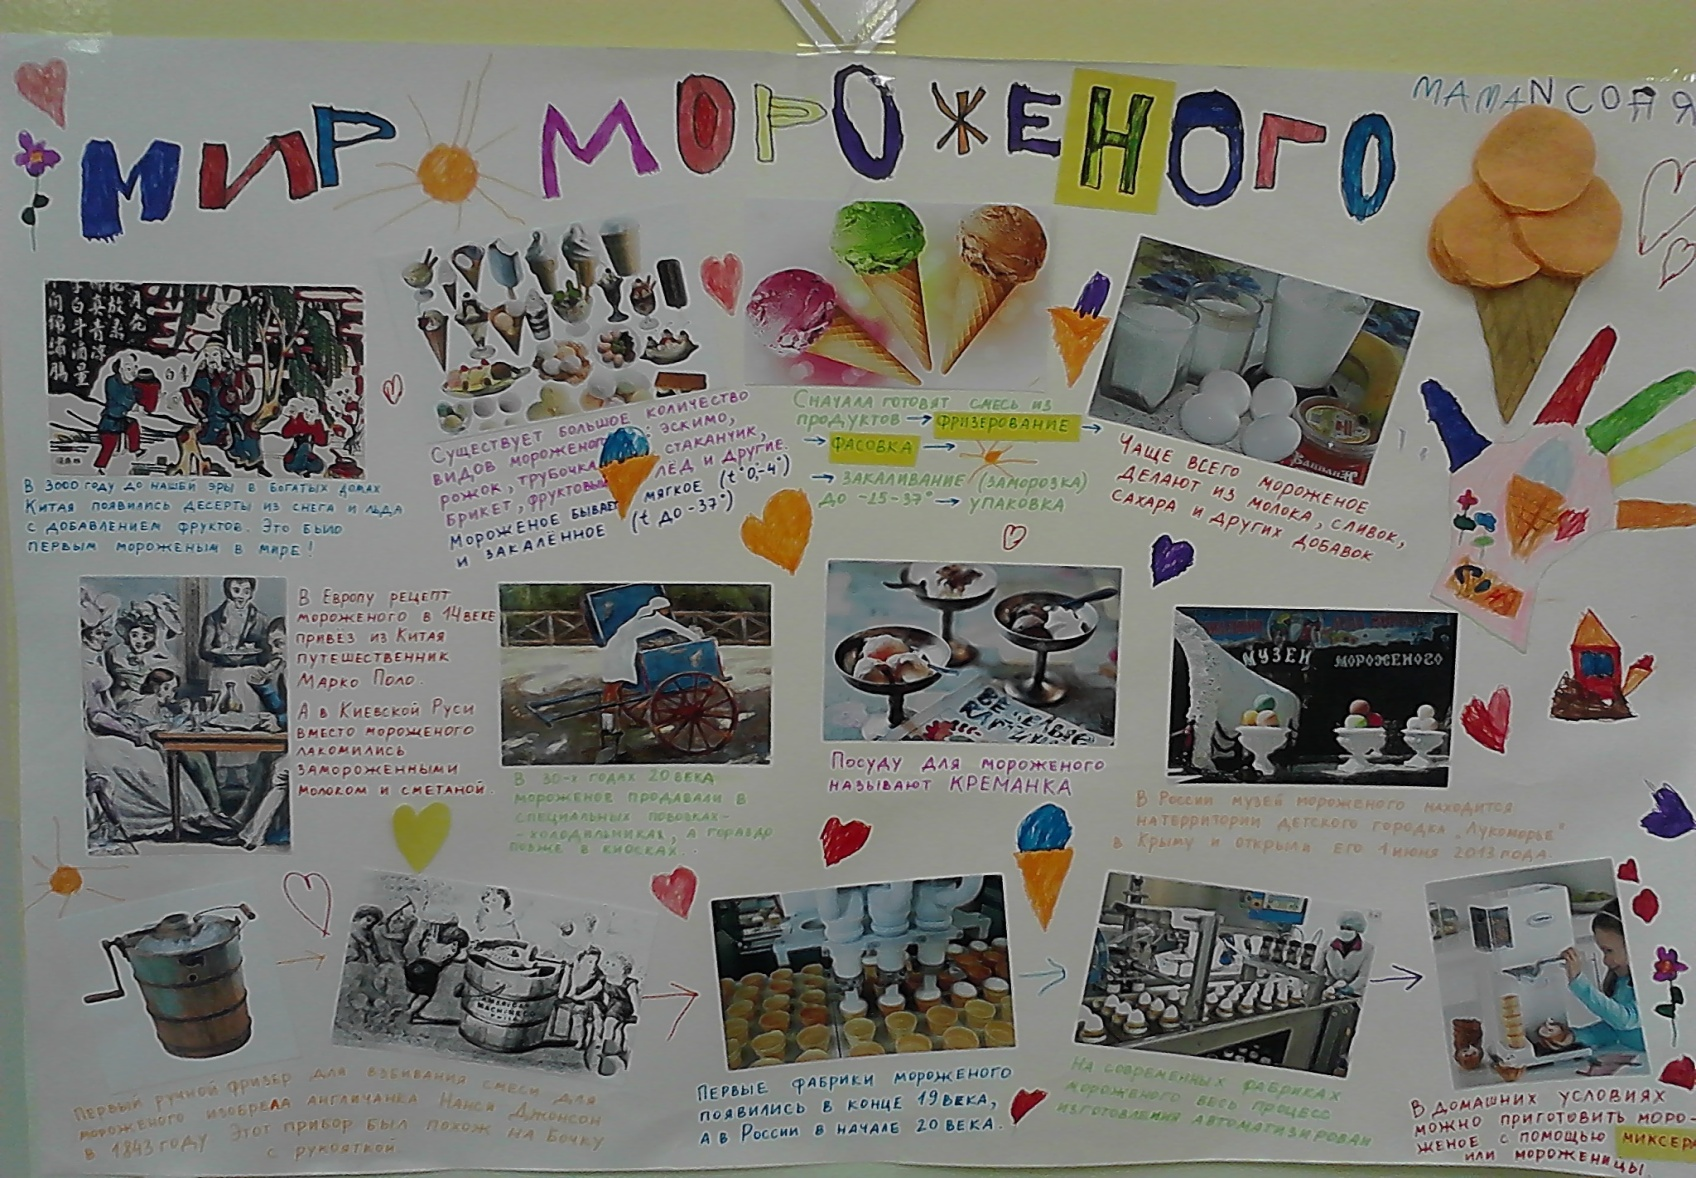 МИР МОРОЖЕНОГО
МАМАNСОНЯ
В 3000 ГОДУ ДО НАШЕЙ ЭРЫ В БОГАТЫХ ДОМАХ
КИТАЯ ПОЯВИЛИСЬ ДЕСЕРТЫ ИЗ СНЕГА И ЛЬДА
С ДОБАВЛЕНИЕМ ФРУКТОВ. ЭТО БЫЛО
ПЕРВЫМ МОРОЖЕНЫМ В МИРЕ!
СУЩЕСТВУЕТ БОЛЬШОЕ КОЛИЧЕСТВО
ВИДОВ МОРОЖЕНОГО: ЭСКИМО,
РОЖОК, ТРУБОЧКА, СТАКАНЧИК,
БРИКЕТ, ФРУКТОВЫЙ ЛЁД И ДРУГИЕ.
МОРОЖЕНОЕ БЫВАЕТ МЯГКОЕ (t° 0,-4°)
И ЗАКАЛЁННОЕ (t ДО -37°)
СНАЧАЛА ГОТОВЯТ СМЕСЬ ИЗ
ПРОДУКТОВ → ФРИЗЕРОВАНИЕ →
→ ФАСОВКА →
→ ЗАКАЛИВАНИЕ (ЗАМОРОЗКА)
ДО -25-37° → УПАКОВКА
ЧАЩЕ ВСЕГО МОРОЖЕНОЕ
ДЕЛАЮТ ИЗ МОЛОКА, СЛИВОК,
САХАРА И ДРУГИХ ДОБАВОК
В ЕВРОПУ РЕЦЕПТ
МОРОЖЕНОГО В 14 ВЕКЕ
ПРИВЁЗ ИЗ КИТАЯ
ПУТЕШЕСТВЕННИК
МАРКО ПОЛО.
А В КИЕВСКОЙ РУСИ
ВМЕСТО МОРОЖЕНОГО
ЛАКОМИЛИСЬ
ЗАМОРОЖЕННЫМИ
МОЛОКОМ И СМЕТАНОЙ.
В 30-х ГОДАХ 20 ВЕКА
МОРОЖЕНОЕ ПРОДАВАЛИ В
СПЕЦИАЛЬНЫХ ПОВОЗКАХ-
-ХОЛОДИЛЬНИКАХ, А ГОРАЗДО
ПОЗЖЕ В КИОСКАХ.
ПОСУДУ ДЛЯ МОРОЖЕНОГО
НАЗЫВАЮТ КРЕМАНКА
МУЗЕЙ МОРОЖЕНОГО
В РОССИИ МУЗЕЙ МОРОЖЕНОГО НАХОДИТСЯ
НА ТЕРРИТОРИИ ДЕТСКОГО ГОРОДКА „ЛУКОМОРЬЕ"
В КРЫМУ И ОТКРЫЛИ ЕГО 1 ИЮНЯ 2013 ГОДА.
ПЕРВЫЙ РУЧНОЙ ФРИЗЕР ДЛЯ ВЗБИВАНИЯ СМЕСИ ДЛЯ
МОРОЖЕНОГО ИЗОБРЕЛА АНГЛИЧАНКА НАНСИ ДЖОНСОН
В 1843 ГОДУ ЭТОТ ПРИБОР БЫЛ ПОХОЖ НА БОЧКУ
С РУКОЯТКОЙ.
ПЕРВЫЕ ФАБРИКИ МОРОЖЕНОГО
ПОЯВИЛИСЬ В КОНЦЕ 19 ВЕКА,
А В РОССИИ В НАЧАЛЕ 20 ВЕКА.
НА СОВРЕМЕННЫХ ФАБРИКАХ
МОРОЖЕНОГО ВЕСЬ ПРОЦЕСС
ИЗГОТОВЛЕНИЯ АВТОМАТИЗИРОВАН
В ДОМАШНИХ УСЛОВИЯХ
МОЖНО ПРИГОТОВИТЬ МОРО-
ЖЕНОЕ С ПОМОЩЬЮ МИКСЕРА
ИЛИ МОРОЖЕНИЦЫ.